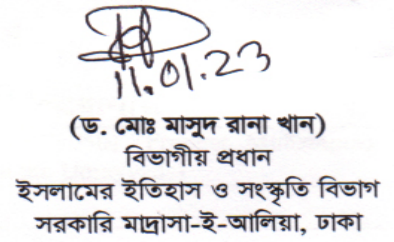 11.01.23
(ড. মোঃ মাসুদ রানা খান)
বিভাগীয় প্রধান
ইসলামের ইতিহাস ও সংস্কৃতি বিভাগ
সরকারি মাদ্রাসা-ই-আলিয়া, ঢাকা